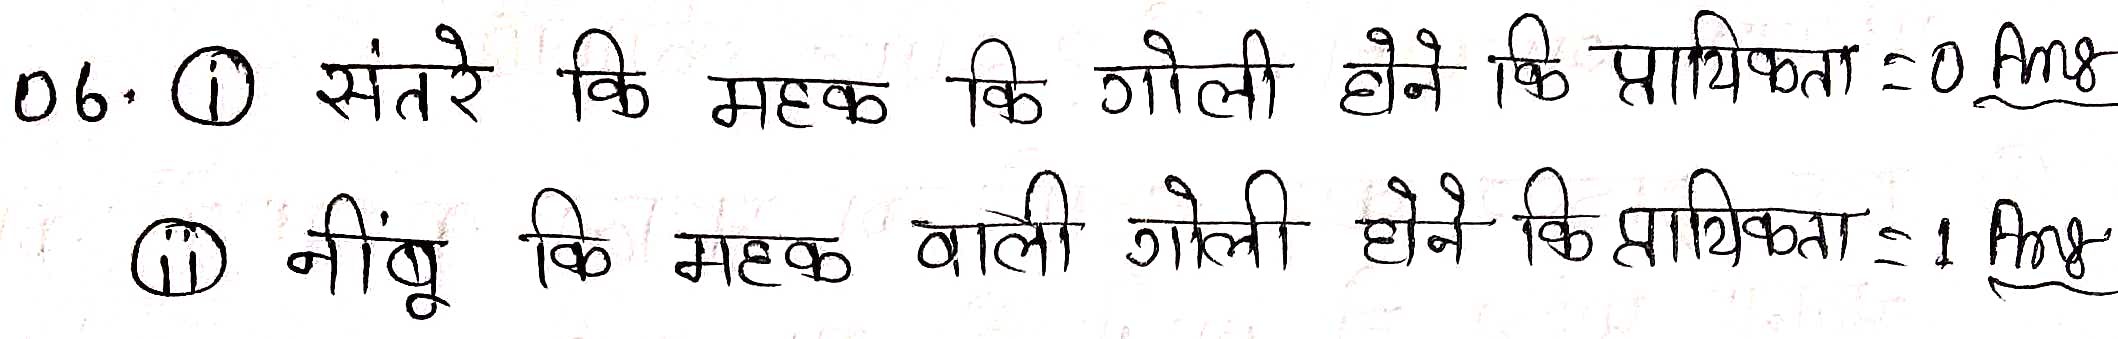 06. (i) संतरे कि महक कि गोली होने कि प्रायिकता = 0 Ans
(ii) नींबू कि महक वाली गोली होने कि प्रायिकता = 1 Ans